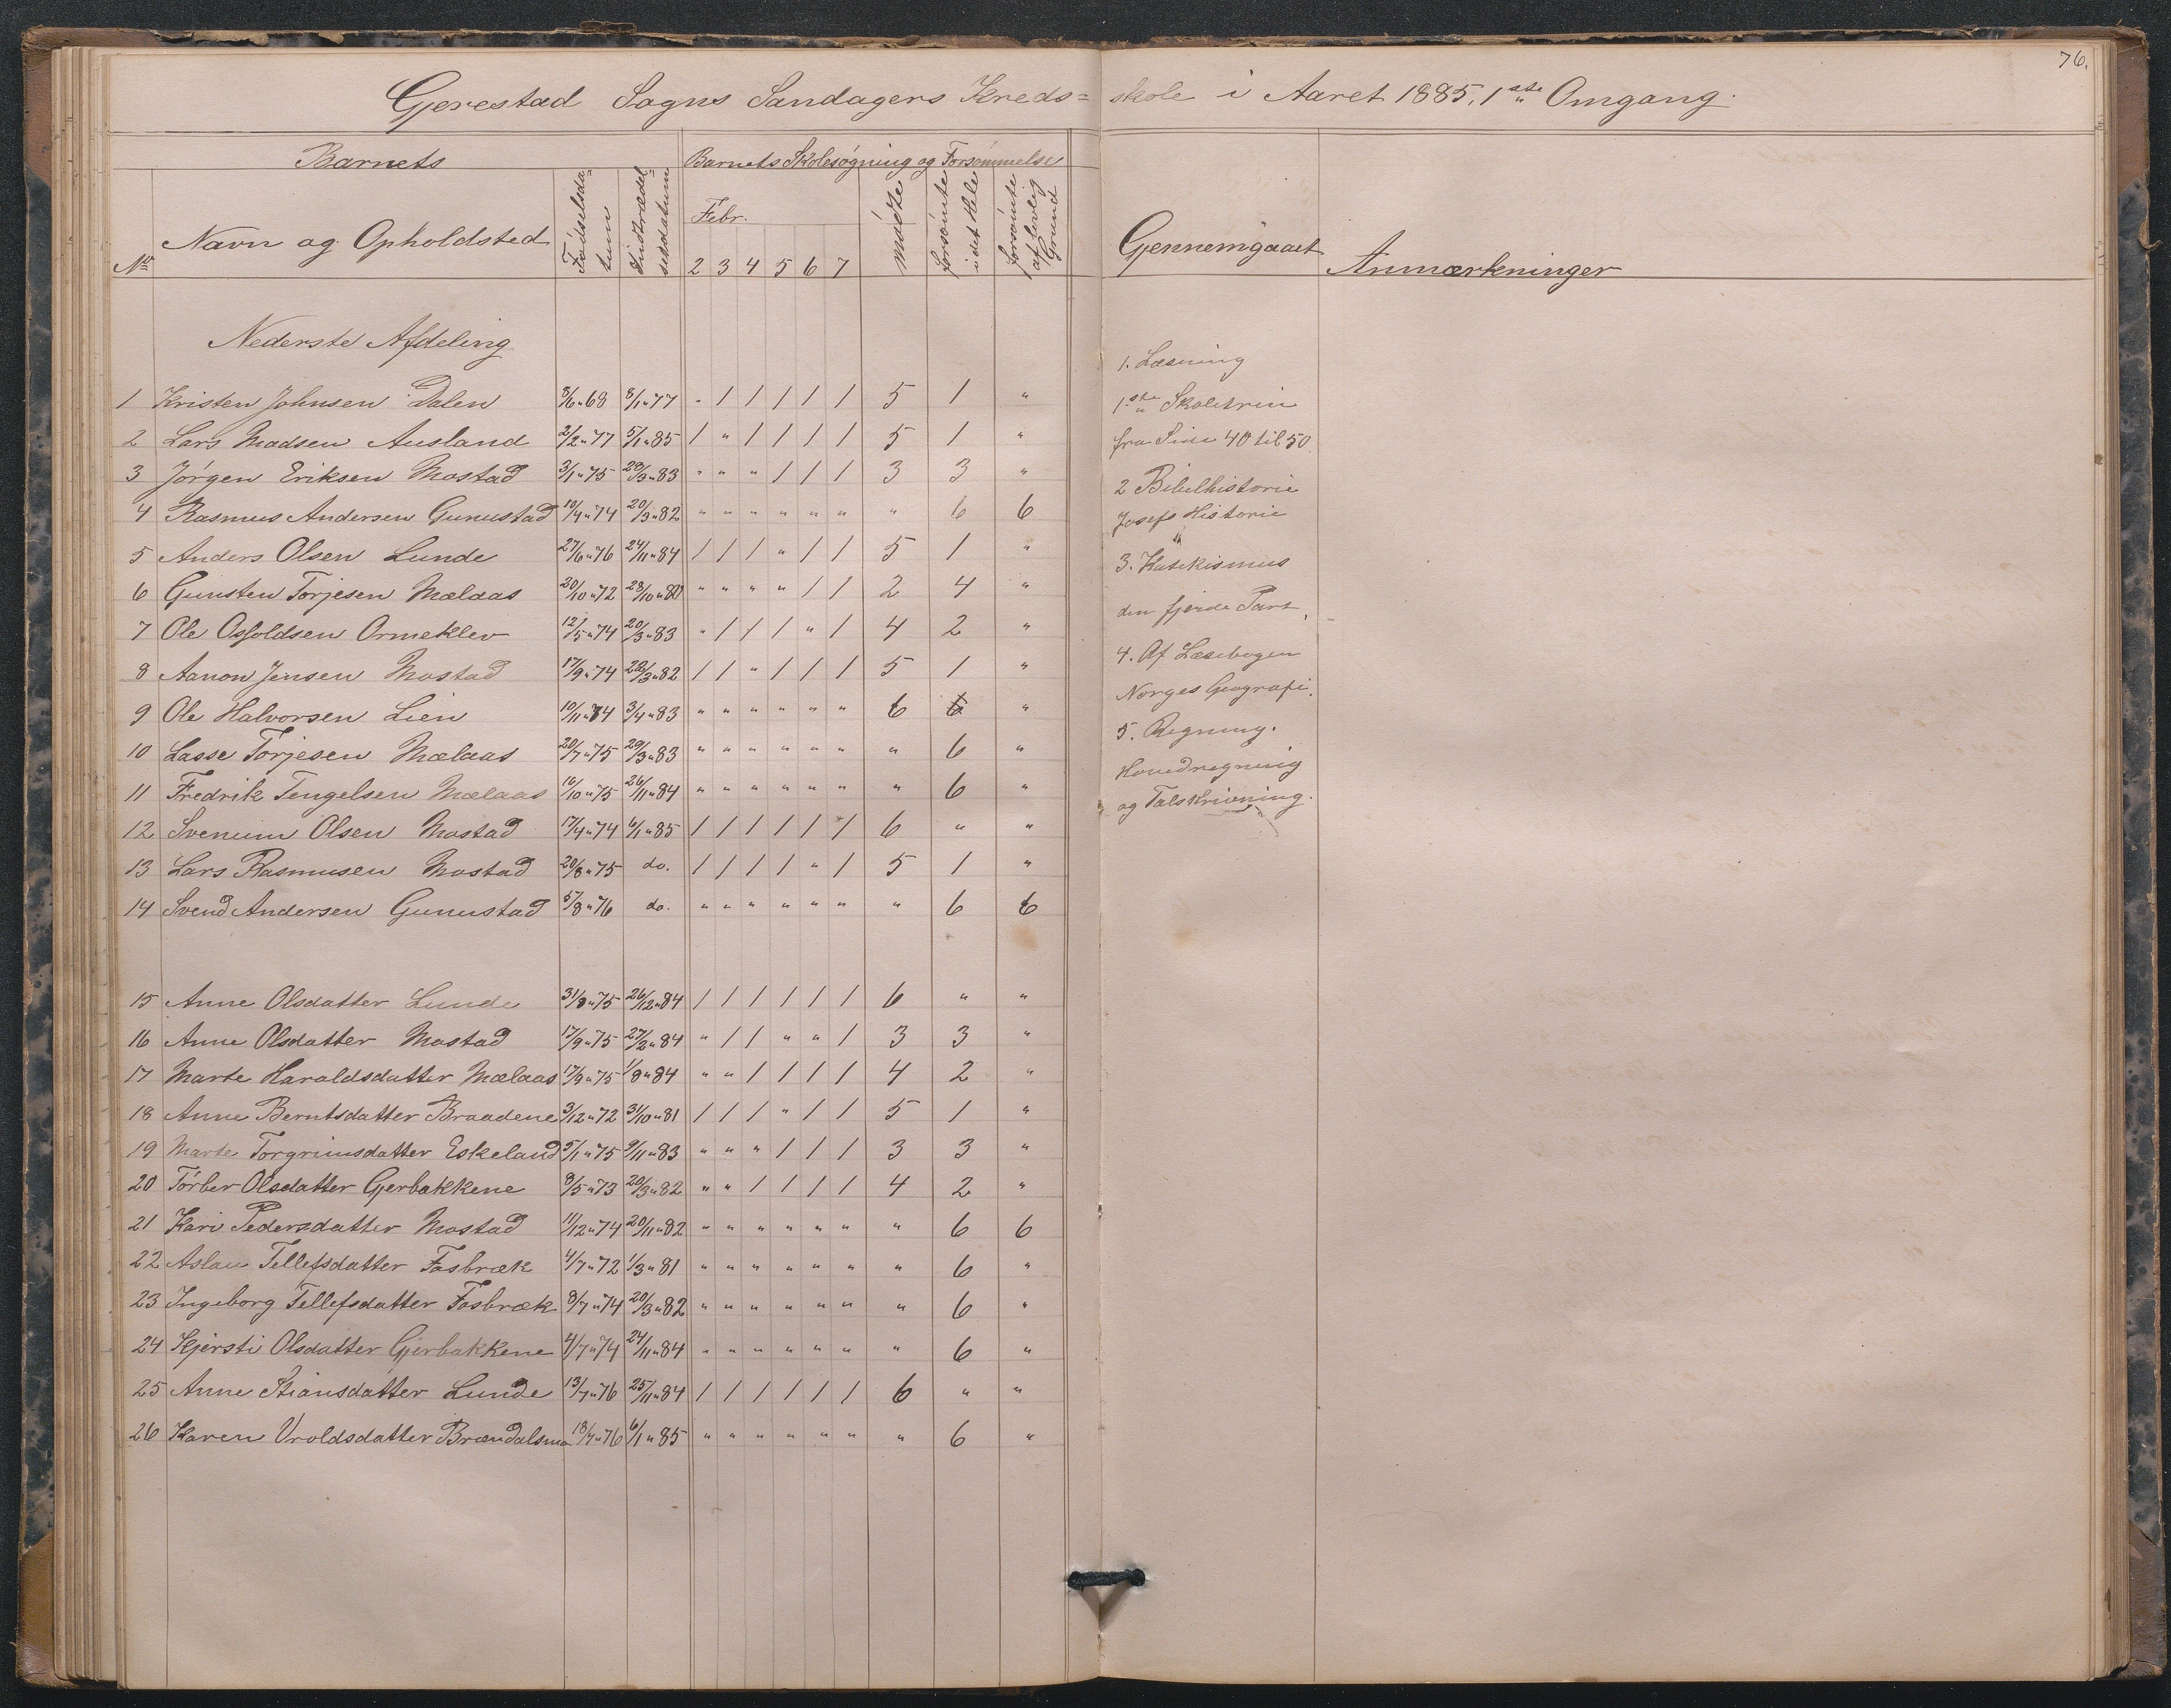 76.
Gjerestad Sogns Sandagers Kreds= skole i Aaret 1885. 1ste Omgang.
Barnets
Barnets Skolesøgning og Forsømmelse
No
Navn og Opholdsted
Fødselsda-tum
Indtrædel-sesdatum
Febr.
2 3 4 5 6 7
mødte
forsømte i det Hele
forsømte af lovlig Grund
Gjennemgaaet
Anmærkninger
Nederste Afdeling
1 Kristen Johnsen Dalen 8/6 " 68 8/1 " 77 " / / / / / 5 1 "
2 Lars Madsen Ausland 2/2 " 77 5/1 " 85 / " / / / / 5 1 "
3 Jørgen Eriksen Mostad 3/1 " 75 29/3 " 83 " " " / / / 3 3 "
4 Rasmus Andersen Gunustad 10/4 " 74 20/3 " 82 " " " " " " " 6 6
5 Anders Olsen Lunde 27/6 " 76 24/11 " 84 / / / " / / 5 1 "
6 Gunsten Torjesen Mælaas 20/10 " 72 28/10 " 80 " " " " / / 2 4 "
7 Ole Osfoldsen Ormeklev 12/5 " 74 20/3 " 83 " / / / " / 4 2 "
8 Aanon Jensen Mostad 17/9 " 74 20/3 " 82 / / " / / / 5 1 "
9 Ole Halvorsen Lien 10/11 " 74 3/4 " 83 " " " " " " 6 6 "
10 Lasse Torjesen Mælaas 20/7 " 75 29/3 " 83 " " " " " " " 6 "
11 Fredrik Tengelsen Mælaas 16/10 " 75 26/11 " 84 " " " " " " " 6 "
12 Svenum Olsen Mostad 17/4 " 74 6/1 " 85 / / / / / / 6 " "
13 Lars Rasmusen Mostad 20/8 " 75 do. / / / / " / 5 1 "
14 Svend Andersen Gunustad 5/8 " 76 do. " " " " " " " 6 6
15 Anne Olsdatter Lunde 31/8 " 75 26/12 " 84 / / / / / / 6 " "
16 Anne Olsdatter Mostad 17/9 " 75 27/2 " 84 " / / " " / 3 3 "
17 Marte Haraldsdatter Mælaas 17/9 " 75 1/8 " 84 " " / / / / 4 2 "
18 Anne Berntsdatter Braadene 3/12 " 72 31/10 " 81 / / / " / / 5 1 "
19 Marte Torgrimsdatter Eskeland 5/1 " 75 9/11 " 83 " " " / / / 3 3 "
20 Tørber Olsdatter Gjerbakkene 8/5 " 73 20/3 " 82 " " / / / / 4 2 "
21 Kari Pedersdatter Mostad 11/12 " 74 20/11 " 82 " " " " " " " 6 6
22 Aslau Tellefsdatter Fosbræk 4/7 " 72 1/3 " 81 " " " " " " " 6 "
23 Ingeborg Tellefsdatter Fosbræk 8/7 " 74 20/3 " 82 " " " " " " " 6 "
24 Kjersti Olsdatter Gjerbakkene 4/7 " 74 24/11 " 84 " " " " " " " 6 "
25 Anne Stiansdatter Lunde 13/7 " 76 25/11 " 84 / / / / / / 6 " "
26 Karen Vroldsdatter Brændalsmo 18/7 " 76 6/1 " 85 " " " " " " " 6 "
1. Læsning
1ste Skoletrin
fra Side 40 til 50
2 Bibelhistorie
Josefs Historie
3. Katekismus
den fjerde Part
4. Af Læsebogen
Norges Geografi.
5. Regning.
Hovedregning
og Talskrivning.